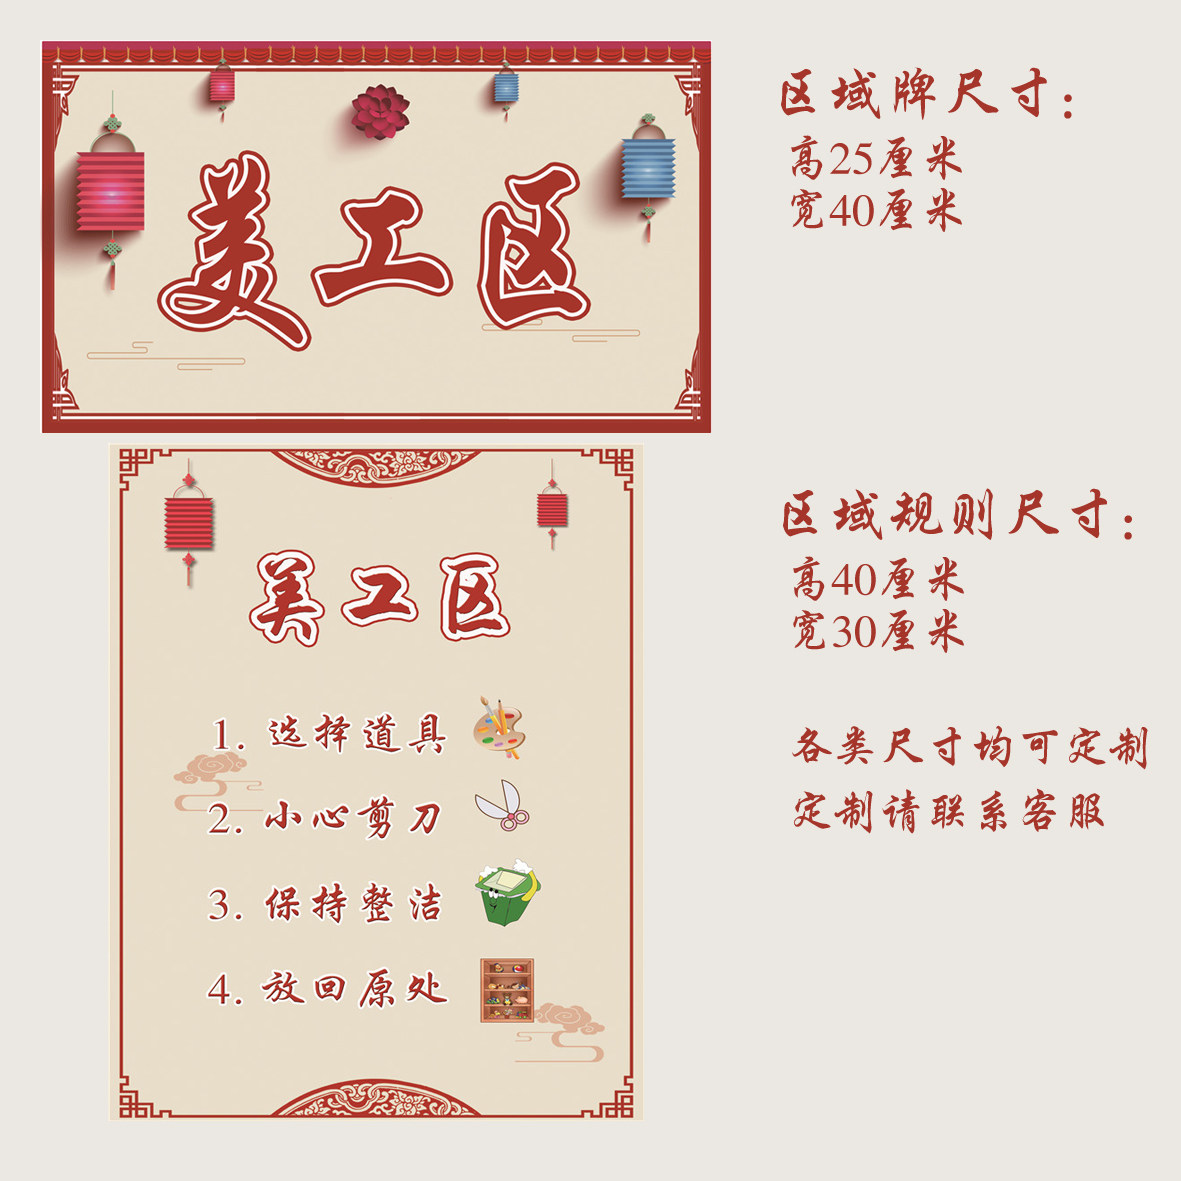 美工区
区域牌尺寸：
高25厘米
宽40厘米
美工区
1. 选择道具
2. 小心剪刀
3. 保持整洁
4. 放回原处
区域规则尺寸：
高40厘米
宽30厘米
各类尺寸均可定制
定制请联系客服